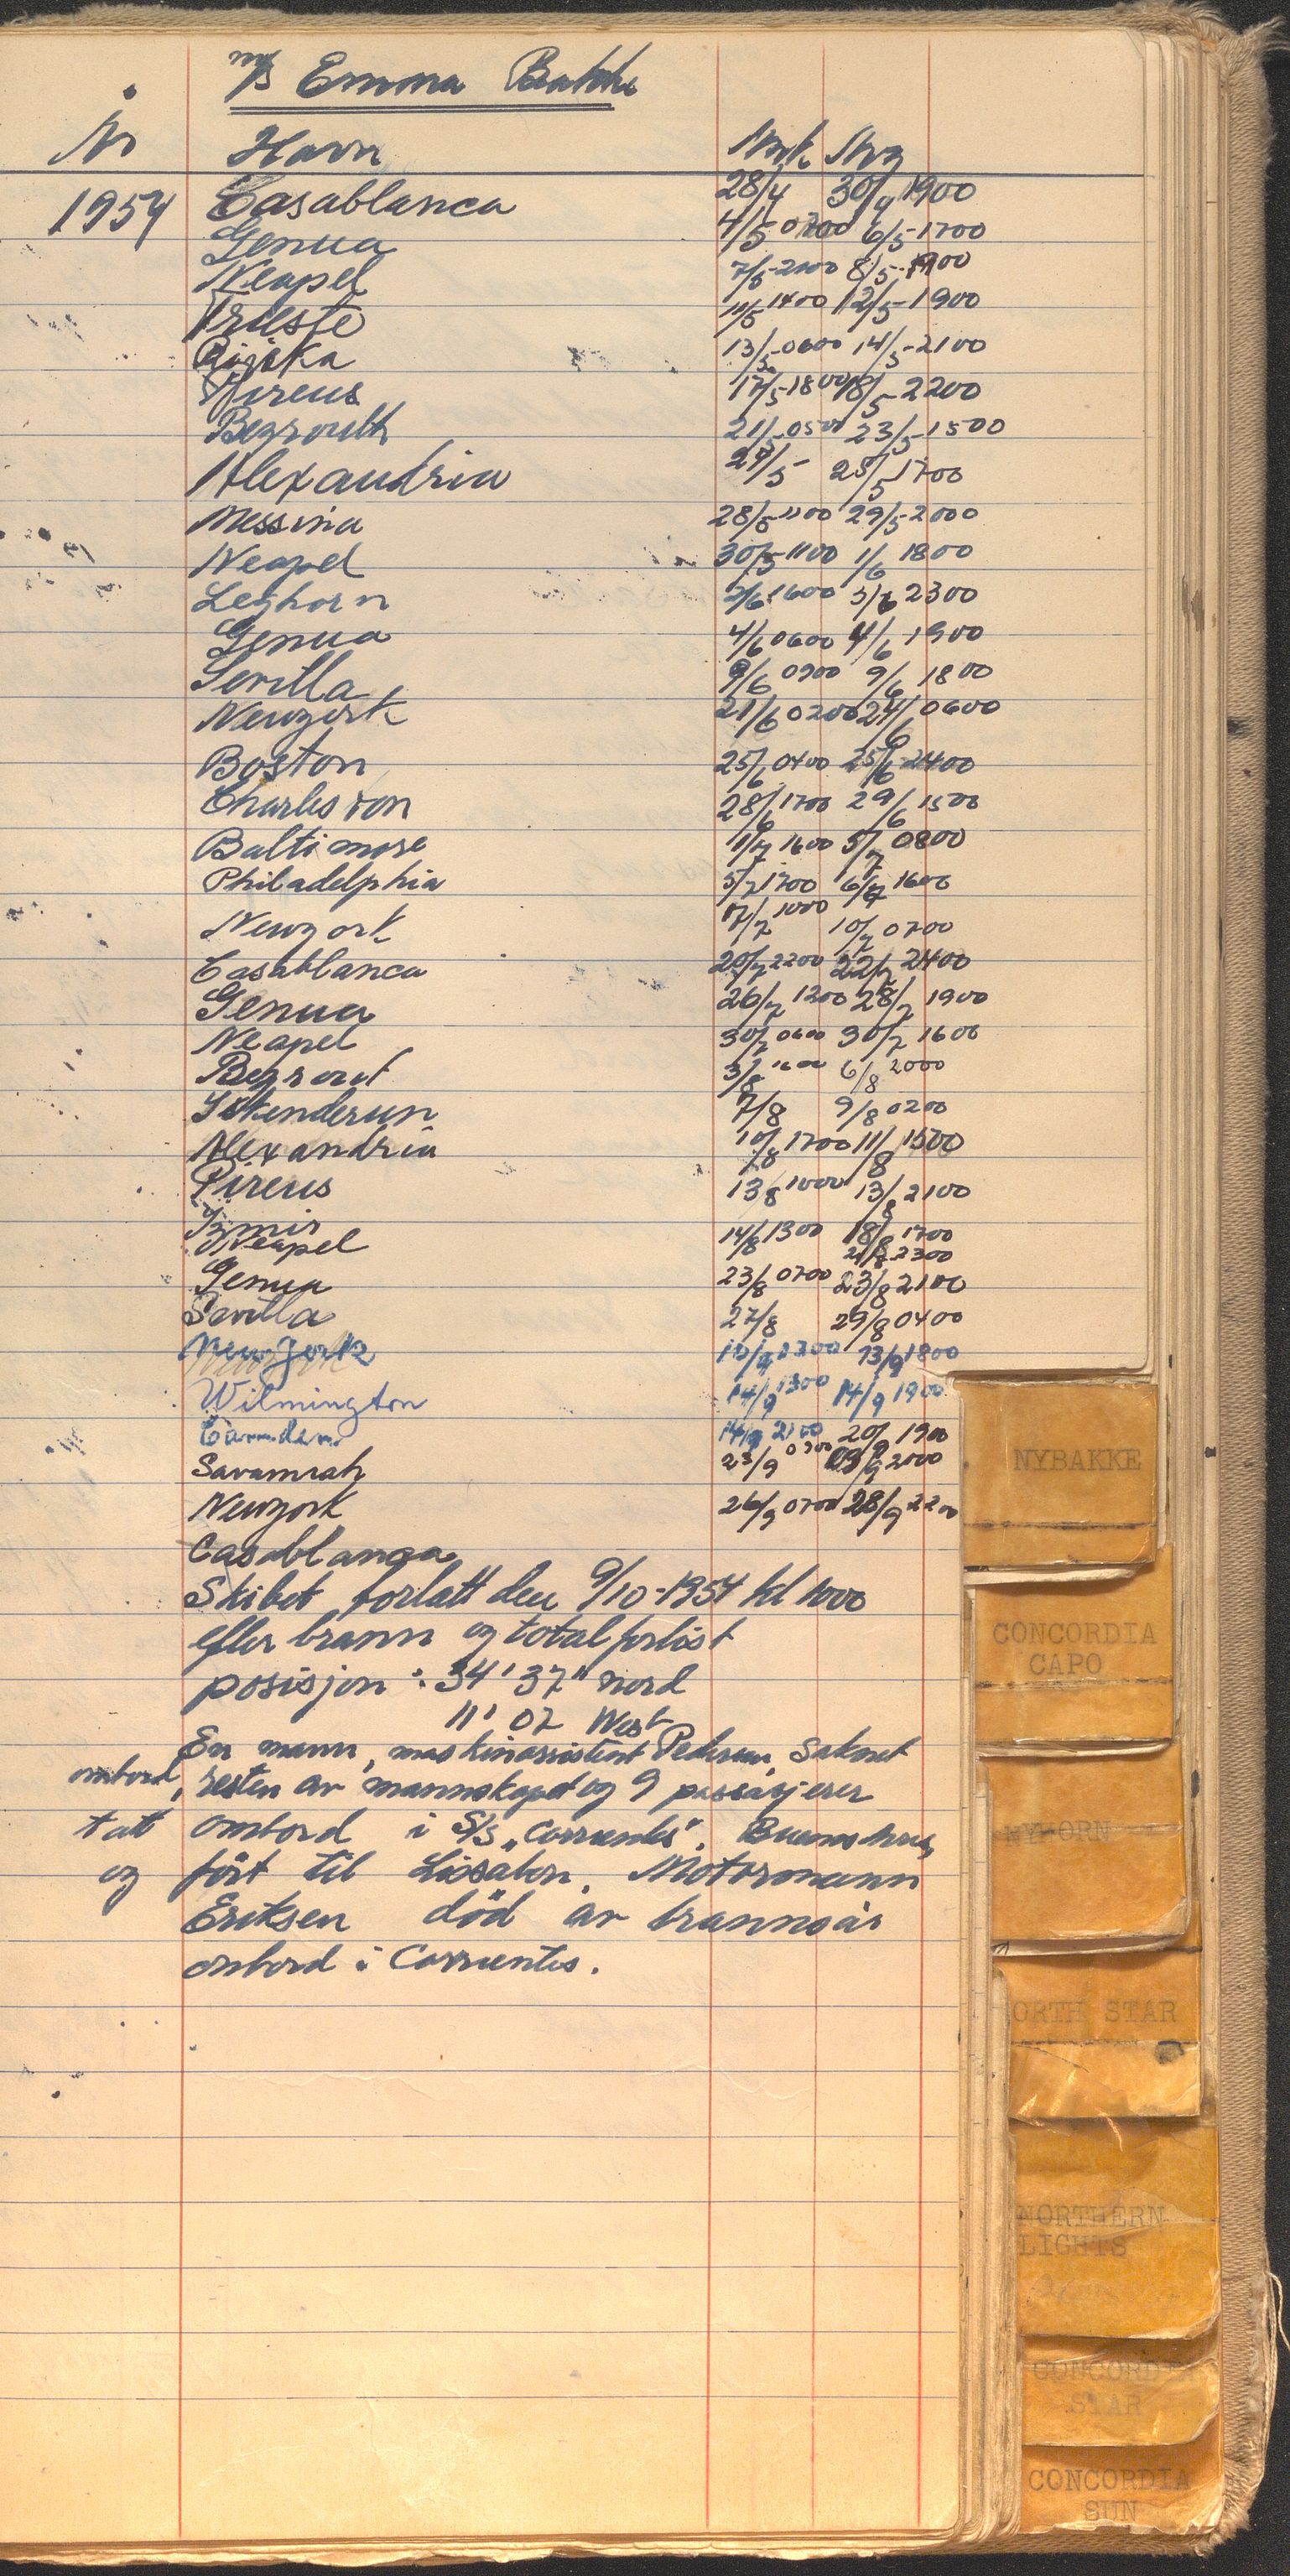 M/S Emma Bakke
Nr Havn Ank Avg
1954 Casablanca 28/4 30/4 1900
Genua 4/5 0700 6/5-1700
Neapel 7/5-2100 8/5-1900
Trieste 11/5 1400 12/5-1900
Rijeka 13/5-0600 14/5-2100
Pireus 17/5-1800 18/5 2200
Beyrouth 21/5-0500 23/5-1500
Alexandria 24/5 25/5 1700
Messina 28/5 1100 29/5-2000
Neapel 30/5 1100 1/6 1800
Leghorn 2/6 1600 3/6 2300
Genua 4/6 0600 4/6 1900
Sevilla 9/6 0900 9/6 1800
Newyork 21/6 0200 24/6 0600
Boston 25/6 0400 25/6 2400
Charleston 28/6 1700 29/6 1500
Baltimore 1/7 1600 5/7 0800
Philadelphia 5/7 1700 6/7 1600
Newyork 7/7 1000 10/7 0700
Casablanca 20/7 2200 22/7 2400
Genua 26/7 1200 28/7 1900
Neapel 30/7 0600 30/7 1600
Beyrout 3/8 1600 6/8 2000
Iskenderun 7/8 9/8 0200
Alexandria 10/8 1700 11/8 1500
Pireus 13/8 1000 13/8 2100
Izmir 14/8 1300 18/8 1700
Neapel 21/8 2300
Genua 23/8 0700 23/8 2100
Sevilla 27/8 29/8 0400
New York 10/9 2300 13/9 1800
Wilmington 14/9 1300 14/9 1900
Camden 14/9 2100 20/9 1900
Savannah 23/9 0700 23/9 2000
Newyork 26/9 0700 28/9 2200
Casablanca
Skibet forlatt den 9/10-1954 kl 1000
efter brann og total forlist
posisjon : 34' 37" nord
11' 02 West
En mann, maskinassistent Pedersen, Saknet
ombord, resten av mannskapet og 9 passasjerer
tatt ombord i S/S „Corrientes". Buenos Aires,
og fört til Lissabon. Motormann
Eriksen död av brannsår
ombord i Corrientes.
NYBAKKE
CONCORDIA
CAPO
NYHORN
ORTH STAR
NORTHERN
LIGHTS
CONCORDIA
STAR
CONCORDIA
SUN